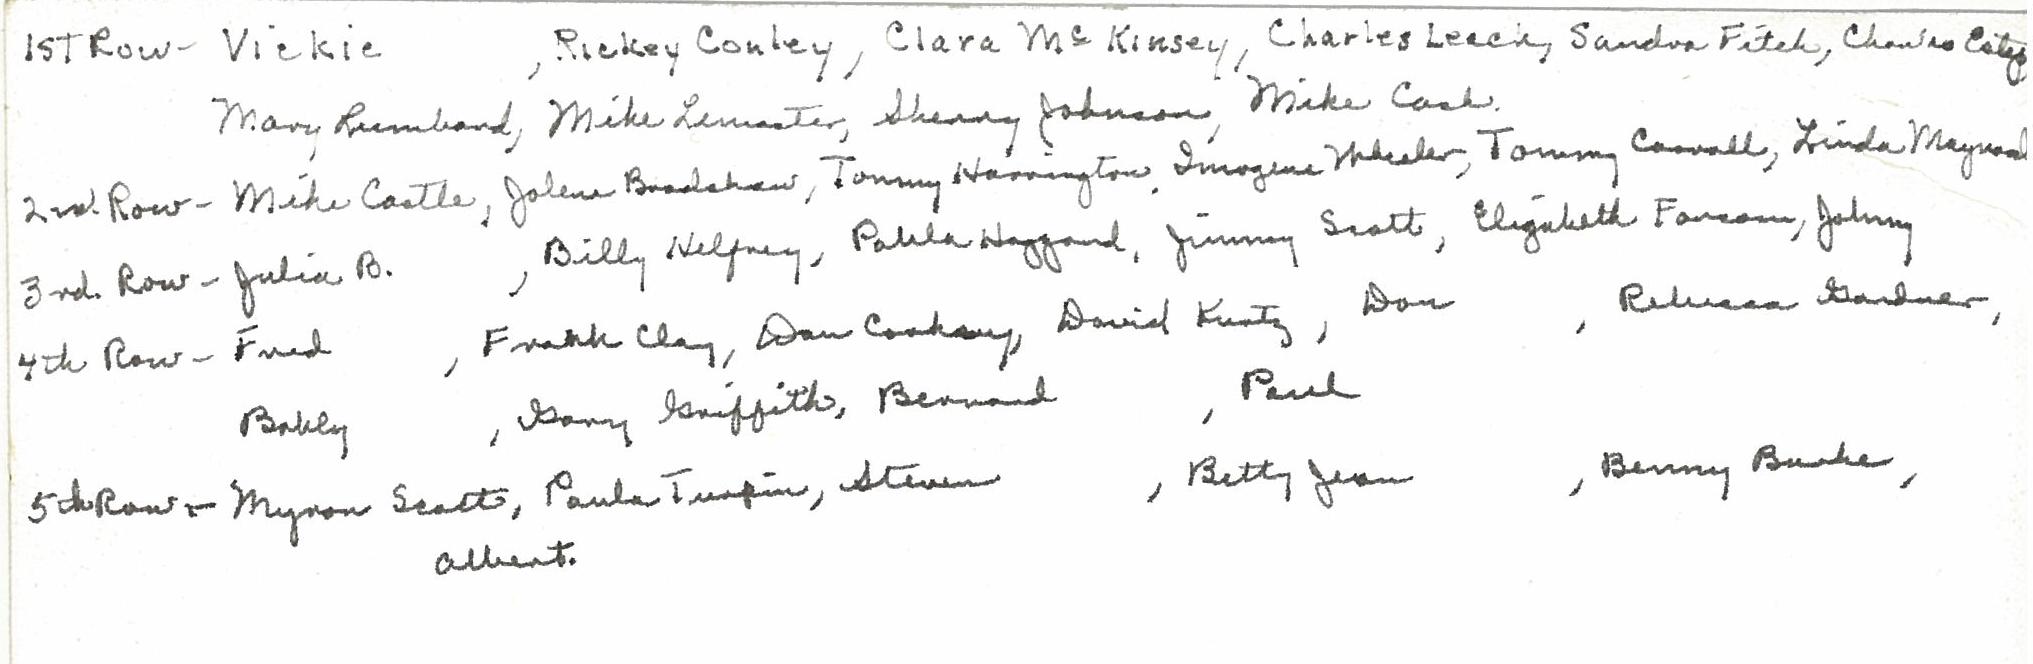 1ST Row - Vickie , Rickey Conley, Clara McKinsey, Charles Leach, Sandra Fitch, Charles Estep
Mary Lumbard, Mike Lemaster, Sherry Johnson, Mike Cash.
2nd. Row - Mike Castle, Jolene Bradshaw, Tommy Harrington, Imogene Wheeler, Tommy Carroll, Linda Maynard
3rd. Row - Julia B. , Billy Helfrey, Paula Haggard, Jimmy Scott, Elizabeth Fansom, Johnny
4th Row - Fred , Frank Clay, Dan Cooksey, David Kuntz, Don , Rebecca Gardner,
Bobby , Gary Griffith, Bernard , Paul
5th Row - Myron Scott, Paula Turpin, Steven , Betty Jean , Benny Burke,
Albert.